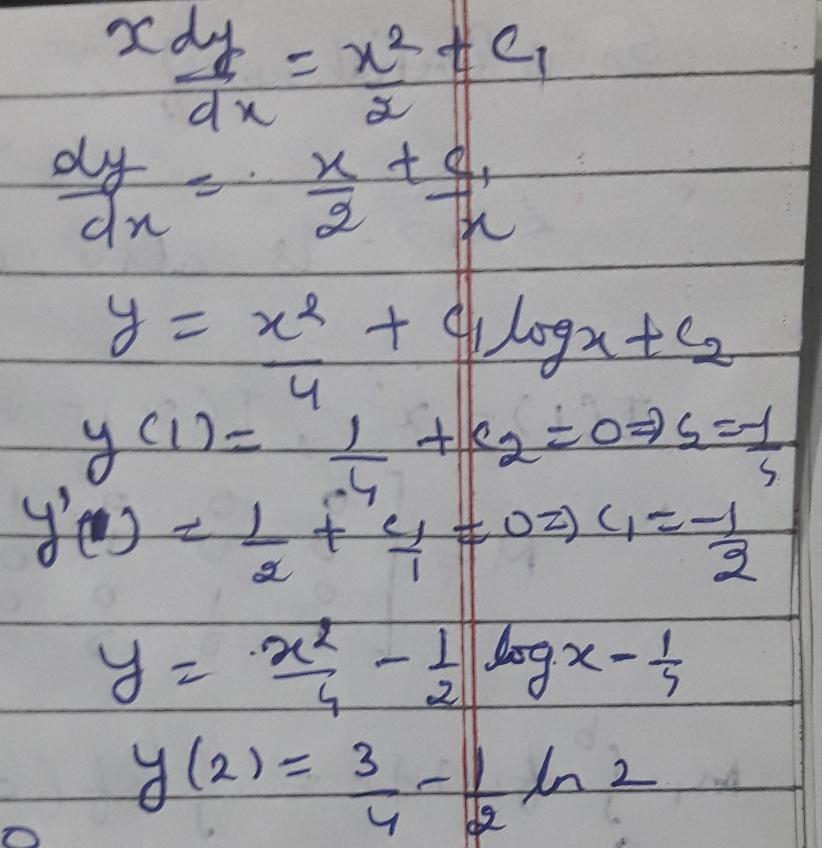 x dy/dx = x²/2 + c₁
dy/dx = x/2 + c₁/x
y = x²/4 + c₁ log x + c₂
y(1) = 1/4 + c₂ = 0 ⇒ c₂ = -1/4
y'(1) = 1/2 + c₁/1 = 0 ⇒ c₁ = -1/2
y = x²/4 - 1/2 log x - 1/4
y(2) = 3/4 - 1/2 ln 2